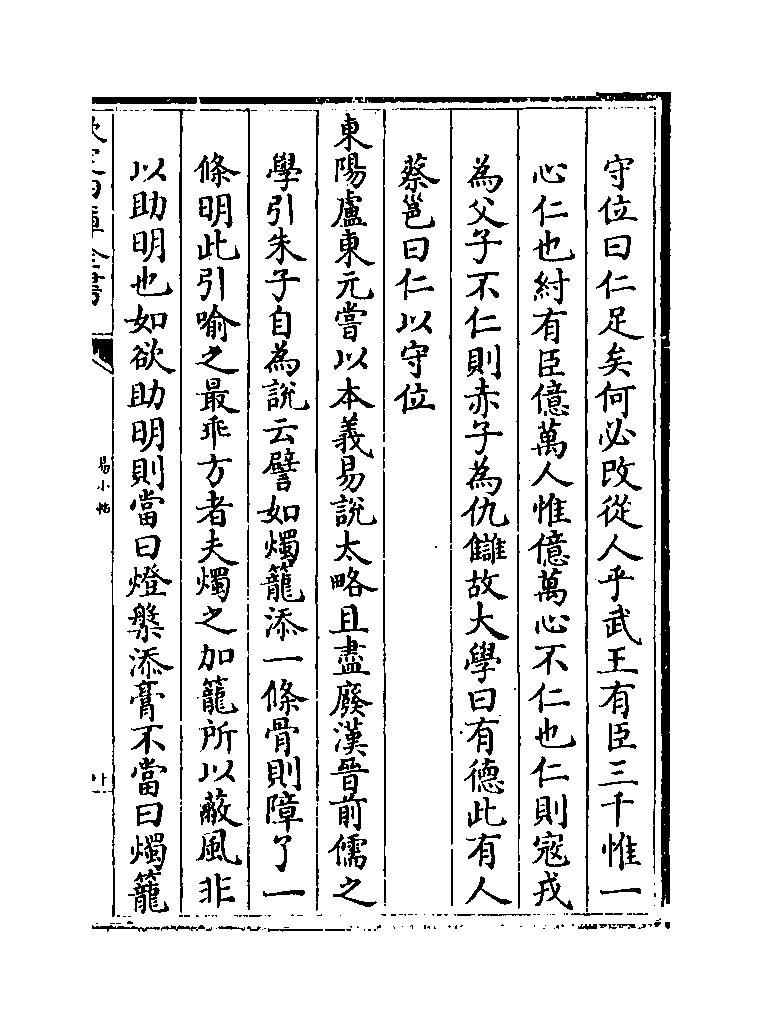 守位曰仁足矣何必改從人乎武王有臣三千惟一
心仁也紂有臣億萬人惟億萬心不仁也仁則寇戎
為父子不仁則赤子為仇讎故大學曰有德此有人
蔡邕曰仁以守位
東陽盧東元嘗以本義易說太略且盡廢漢晉前儒之
學引朱子自為說云譬如燭籠添一條骨則障了一
條明此引喻之最乖方者夫燭之加籠所以蔽風非
以助明也如欲助明則當曰燈槃添膏不當曰燭籠
易小帖